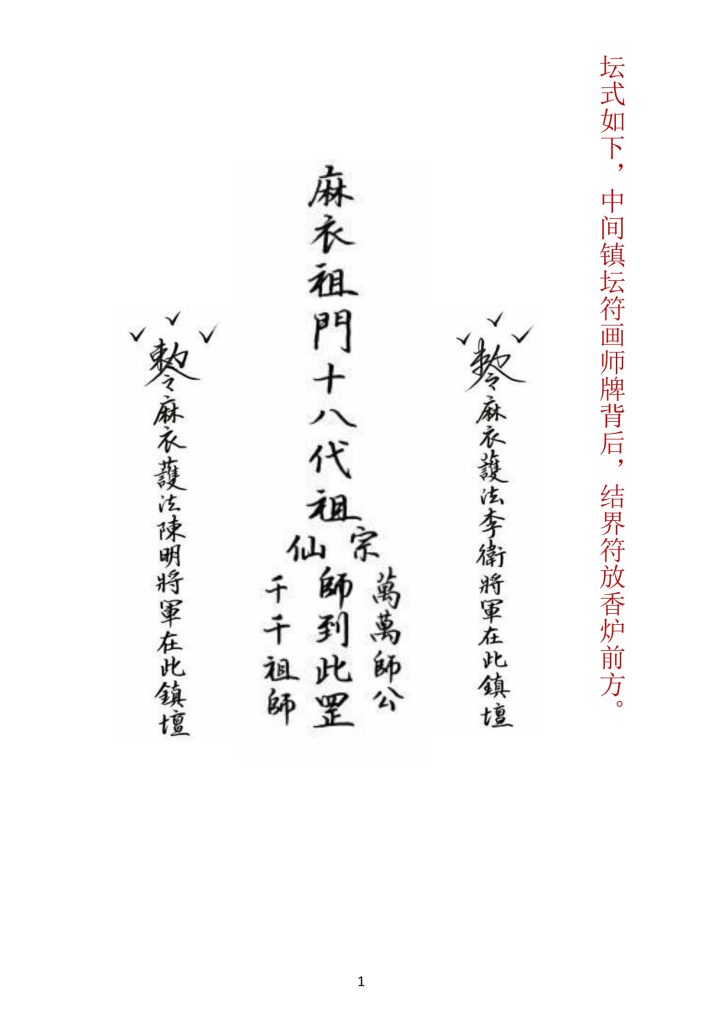 坛式如下，中间镇坛符画师牌背后，结界符放香炉前方。
勅令麻衣護法李衛將軍在此鎮壇
麻衣祖門十八代祖
宗
仙
師到此罡
萬萬師公
千千祖師
勅令麻衣護法陳明將軍在此鎮壇
1